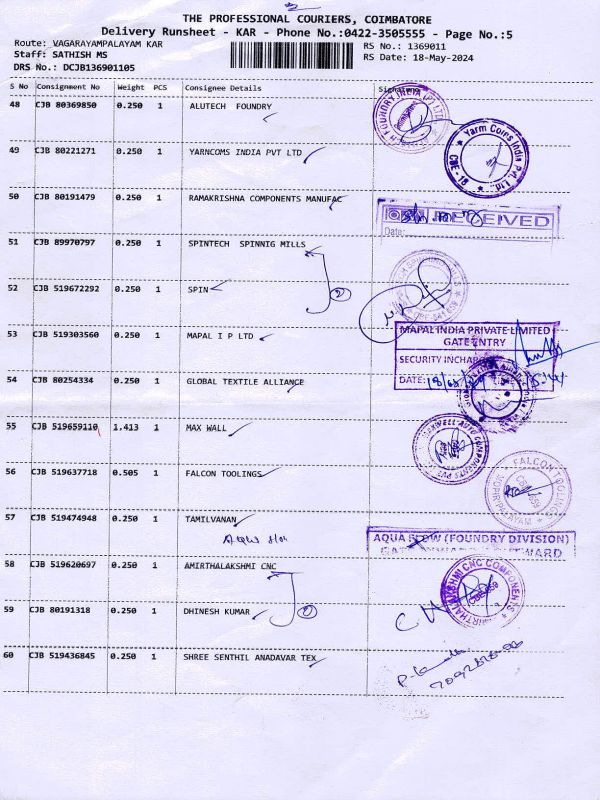 THE PROFESSIONAL COURIERS, COIMBATORE
Delivery Runsheet - KAR - Phone No.:0422-3505555 - Page No.:5
Route: VAGARAYAMPALAYAM KAR
RS No.: 1369011
Staff: SATHISH MS
RS Date: 18-May-2024
DRS No.: DCJB136901105
S No Consignment No Weight PCS Consignee Details Signature
48 CJB 80369850 0.250 1 ALUTECH FOUNDRY
49 CJB 80221271 0.250 1 YARNCOMS INDIA PVT LTD
Yarn Coms India Pvt. Ltd.
CBE - 18
50 CJB 80191479 0.250 1 RAMAKRISHNA COMPONENTS MANUFAC
RECEIVED
Date:
51 CJB 89970797 0.250 1 SPINTECH SPINNIG MILLS
2
52 CJB 519672292 0.250 1 SPIN
53 CJB 519303560 0.250 1 MAPAL I P LTD
MAPAL INDIA PRIVATE LIMITED
GATE ENTRY
SECURITY INCHARGE
DATE:
54 CJB 80254334 0.250 1 GLOBAL TEXTILE ALLIANCE
55 CJB 519659110 1.413 1 MAX WALL
56 CJB 519637718 0.505 1 FALCON TOOLINGS
FALCON TOOLING
57 CJB 519474948 0.250 1 TAMILVANAN
AQUA FLOW (FOUNDRY DIVISION)
58 CJB 519620697 0.250 1 AMIRTHALAKSHMI CNC
59 CJB 80191318 0.250 1 DHINESH KUMAR
60 CJB 519436845 0.250 1 SHREE SENTHIL ANADAVAR TEX